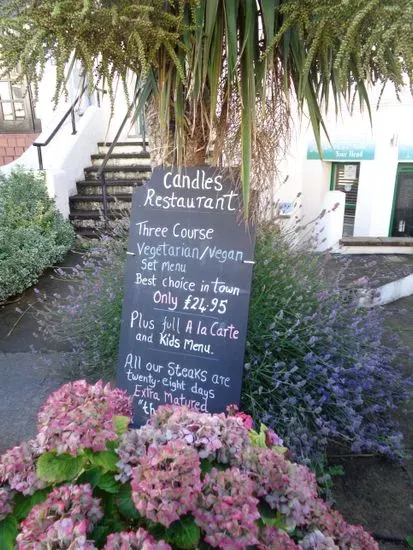 Candles
Restaurant
Three Course
Vegetarian/Vegan
Set Menu
Best choice in town
Only £24.95
Plus full A la Carte
and Kids Menu.
All our Steaks are
twenty-eight days
Extra Matured
"th